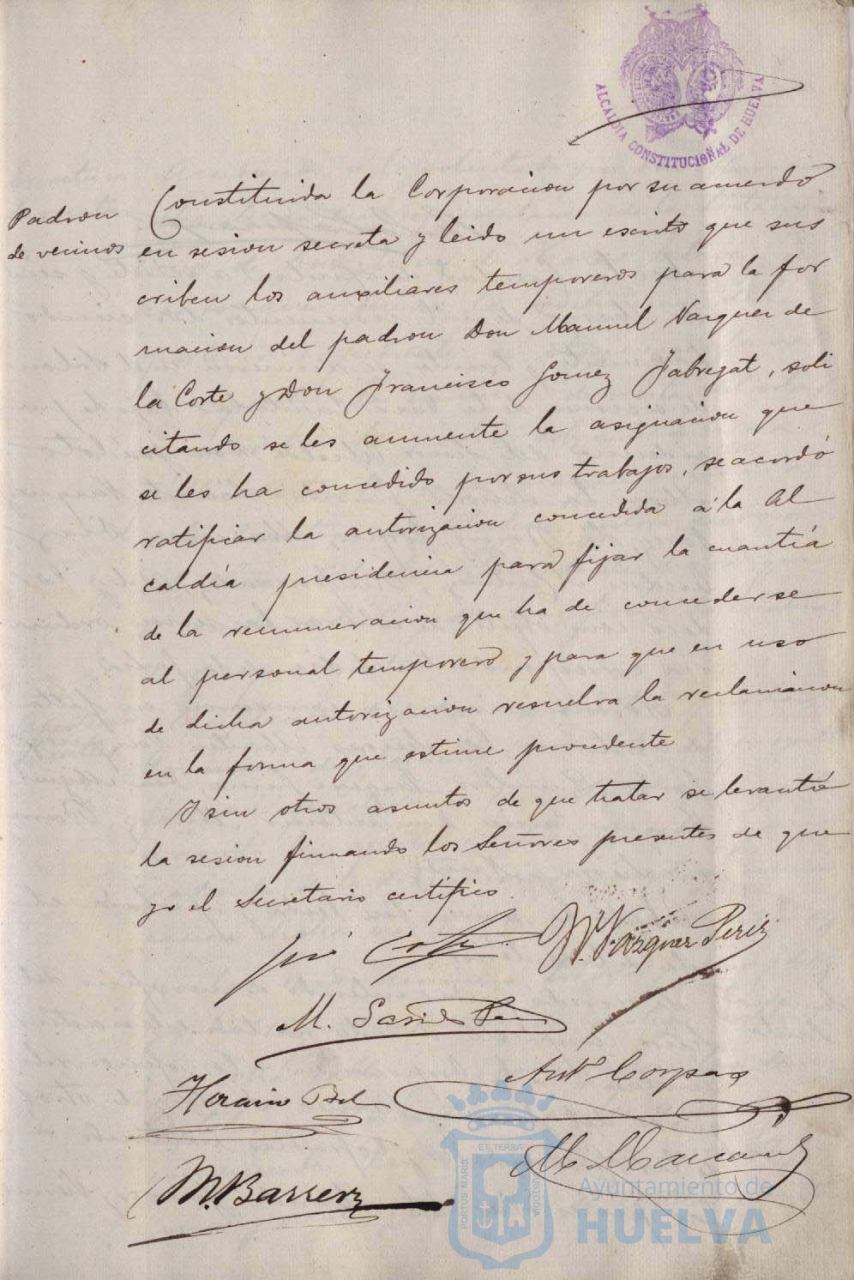 ALCALDÍA CONSTITUCIONAL DE HUELVA
Padron
de vecinos
Constituida la Corporacion por su acuerdo
en sesion secreta y leido un escrito que sus
criben los auxiliares temporeros para la for
macion del padron Don Manuel Vazquez de
la Corte y Don Francisco Gomez Fabregat, soli
citando se les aumente la asignacion que
se les ha concedido por sus trabajos, se acordó
ratificar la autorizacion concedida á la Al
caldía presidencia para fijar la cuantía
de la remuneracion que ha de concederse
al personal temporero y para que en uso
de dicha autorizacion resuelva la reclamacion
en la forma que estime procedente
Y sin otros asuntos de que tratar se levantó
la sesion firmando los Señores presentes de que
yo el Secretario certifico.
José
Vázquez Perez
M.
Antº Corpas
M. Barrera
PORTUS MARIS ET TERRAE CUSTODIA
Ayuntamiento de
HUELVA